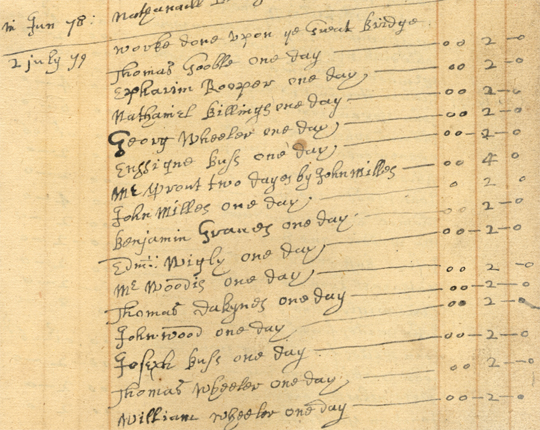 in Jun 78: Nathanaell
2 July 79 worke done vpon ye Great Bridge
Thomas Gobble one day 00 2 - 0
Epharim Rooper one day 00 - 2 - 0
Nathaniel Billings one day 00 - 2 - 0
Georg Wheeler one day 00 - 2 - 0
Enssigne Buss one day 00 - 2 - 0
Mr Sprout two dayes by John Milles 00 4 0
John Milles one day 0 2 0
Benjamin Graues one day 00 2 - 0
Edm: Wigly one day 00 - 2 - 0
Mr Woodis one day 00 2 - 0
Thomas dakynes one day 00 - 2 - 0
John wood one day 00 - 2 - 0
Joseph Buss one day 00 - 2 - 0
Thomas Wheeler one day 00 - 2 - 0
William Wheeler one day 00 - 2 - 0